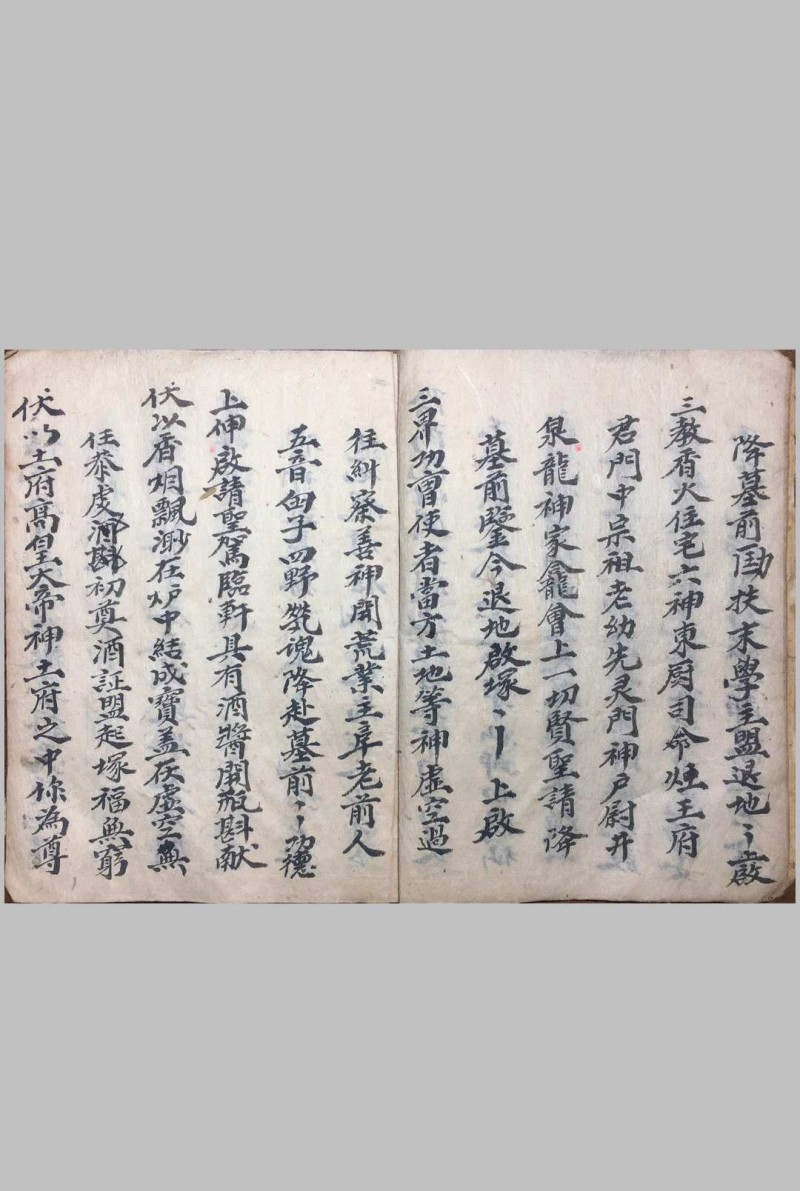 降墓前劻扶末學主盟退地〻上啟
三教香火住宅六神東厨司命煙王府
君門中宗祖老幼先灵門神户尉井
泉龍神家龕會上一切賢聖請降
墓前鑒今退地啟塚〻〡上啟
三界功曹使者當方土地等神虛空過
往糾察善神開荒業主辛老前人
五音男子四野茕魂降赴墓前〻〻功德
上伸啟請聖駕臨軒具有酒醬開瓶斟献
伏以香烟飄渺在炉中結成寶盖在虛空無
任恭虔初奠酒証盟起塚福無窮
伏以土府高皇大帝神土府之中你為尊